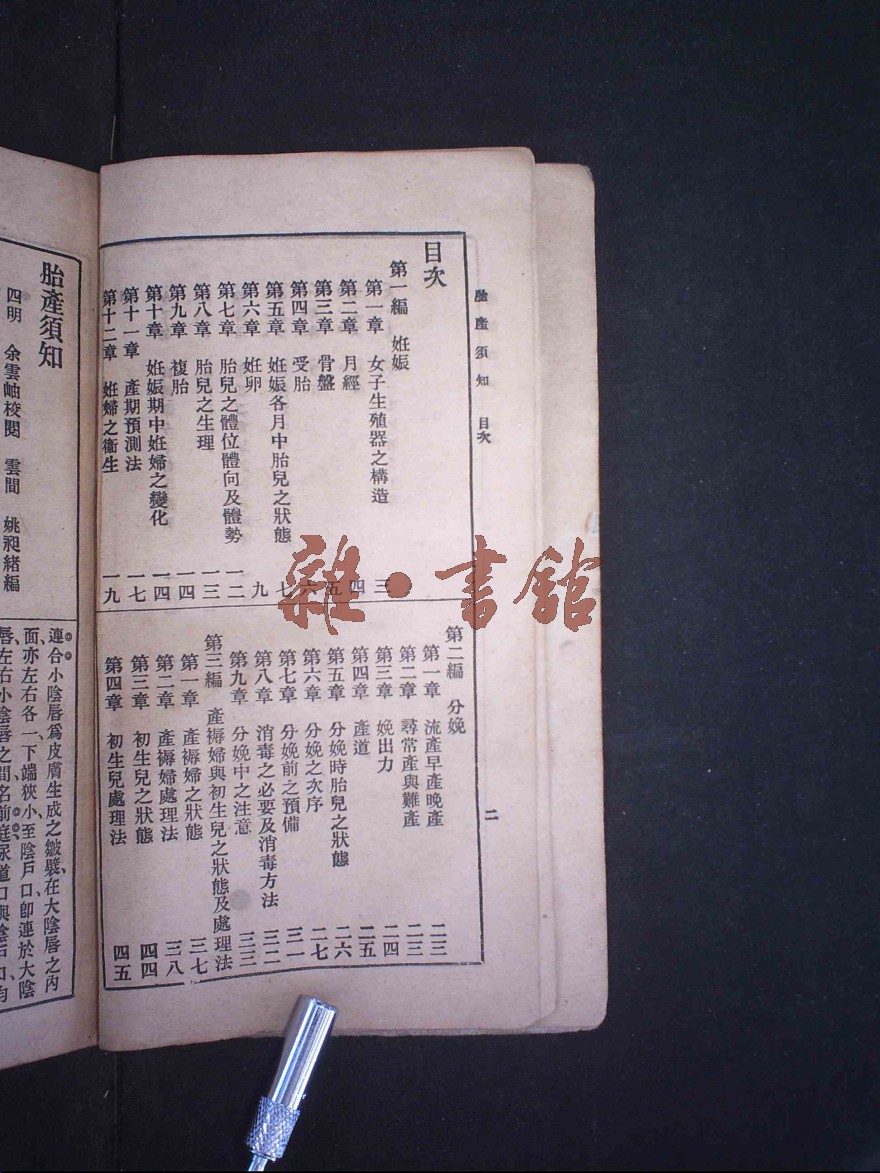 胎產須知 目次
二
目次
第一編 妊娠
第一章 女子生殖器之構造 三
第二章 月經 四
第三章 骨盤 五
第四章 受胎 六
第五章 妊娠各月中胎兒之狀態 七
第六章 妊卵 九
第七章 胎兒之體位體向及體勢 一二
第八章 胎兒之生理 一三
第九章 複胎 一四
第十章 妊娠期中妊婦之變化 一四
第十一章 產期預測法 一七
第十二章 妊婦之衞生 一九
第二編 分娩
第一章 流產早產晚產 二三
第二章 尋常產與難產 二三
第三章 娩出力 二四
第四章 產道 二五
第五章 分娩時胎兒之狀態 二六
第六章 分娩之次序 二七
第七章 分娩前之預備 三一
第八章 消毒之必要及消毒方法 三二
第九章 分娩中之注意 三三
第三編 產褥婦與初生兒之狀態及處理法
第一章 產褥婦之狀態 三七
第二章 產褥婦處理法 三八
第三章 初生兒之狀態 四四
第四章 初生兒處理法 四五
胎產須知
四明 余雲岫校閱 雲間 姚昶緒編
連合小陰唇爲皮膚生成之皺襞、在大陰唇之內
面亦左右各一、下端狹小、至陰戶口、卽連於大陰
唇、左右小陰唇之間名前庭、尿道口與陰戶口、均
雜·書館